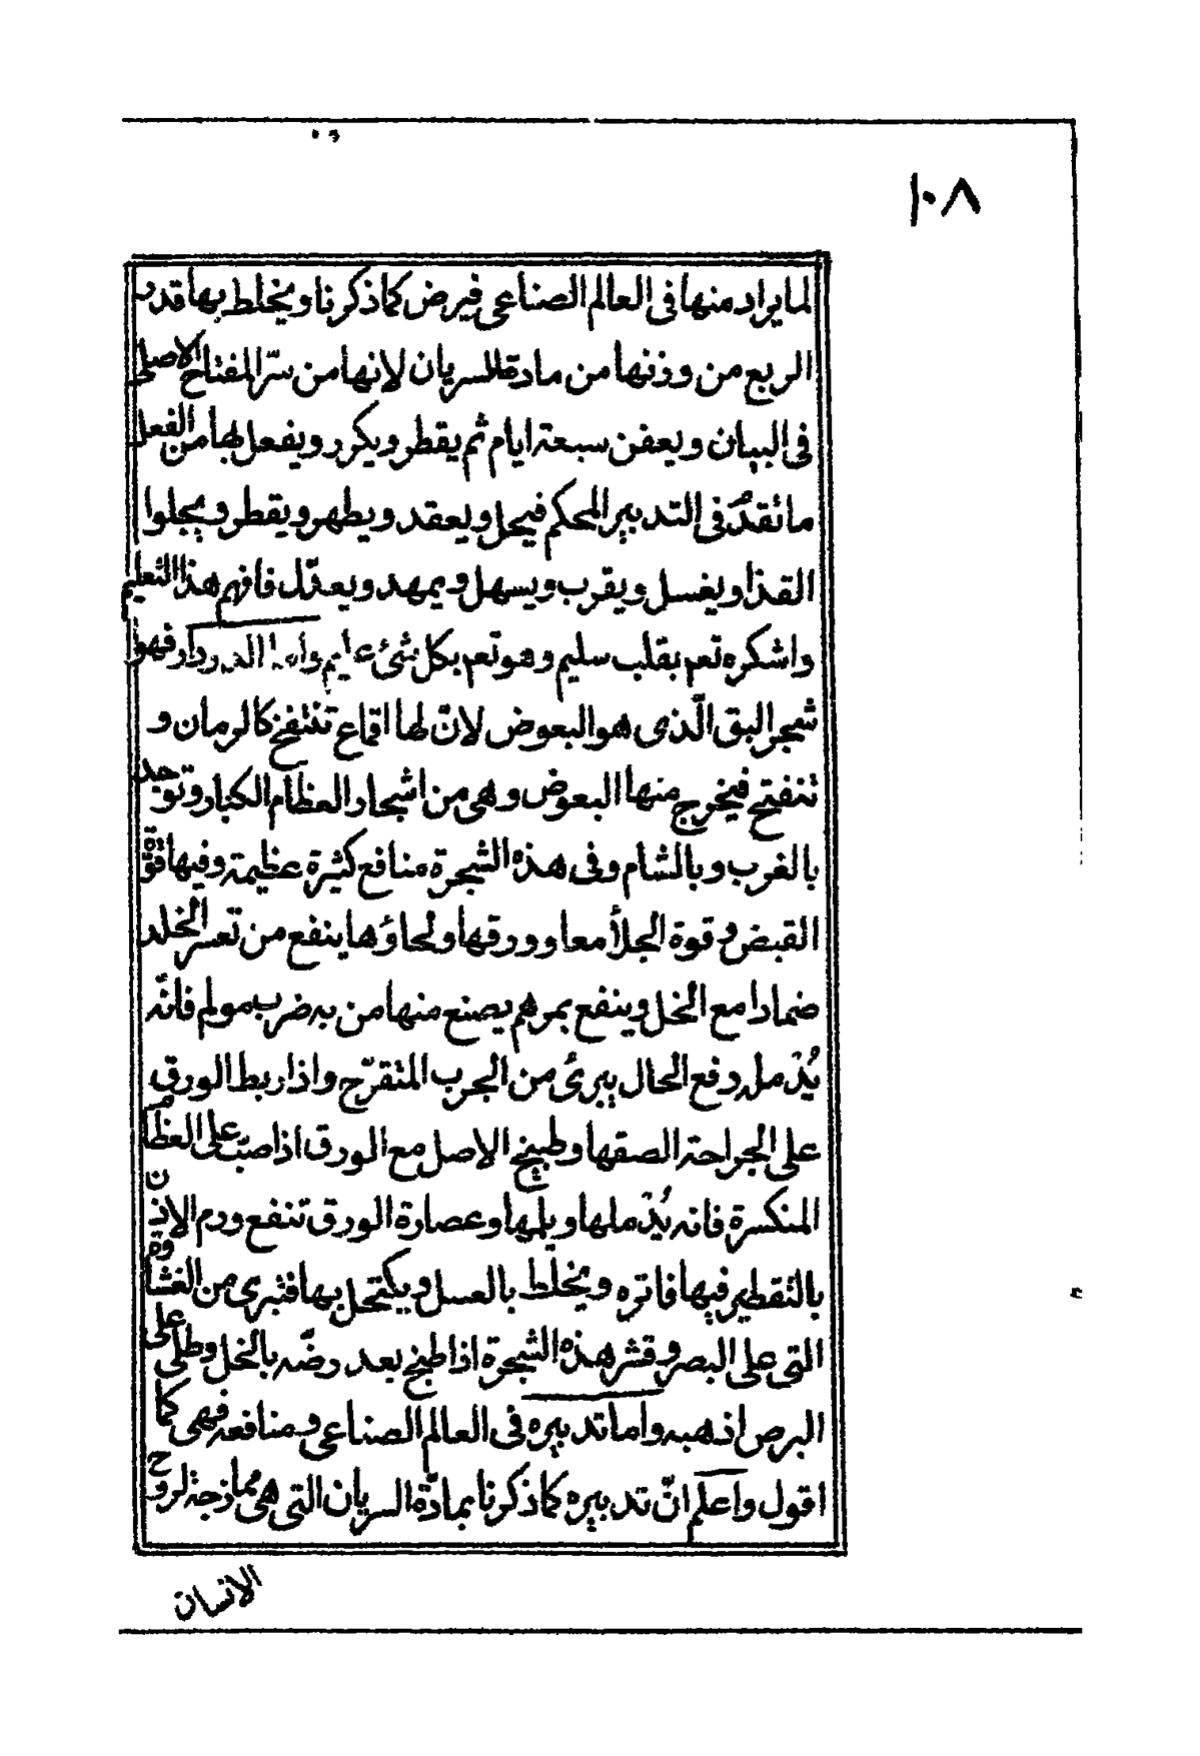 ١٠٨
لما يراد منها فى العالم الصناعى فيرض كما ذكرنا ويخلط بها قدر
الربع من وزنها من مادة السريان لانها من سرّ المفتاح الاصلى
فى البيان ويعفن سبعة ايام ثم يقطر ويكرر ويفعل لها من الفعل
ما تقدم فى التدبير المحكم فيحل ويعقد ويطهر ويقطر ويجلوا
القذا ويغسل ويقرب ويسهل ويمهد ويعدّل فافهم هذا التعليم
واشكره تعم بقلب سليم وهو تعم بكل شئ عليم واما الدردار فهو
شجر البق الّذى هو البعوض لانّ لها اقماع تنتفخ كالرمان و
تنفتح فيخرج منها البعوض وهى من اشجار العظام الكبار وتوجد
بالغرب وبالشام وفى هذه الشجرة منافع كثيرة عظيمة وفيها قوّة
القبض وقوة الجلأ معا وورقها ولحاؤها ينفع من تعسر الخلد
ضمادا مع الخل وينفع بمرهم يصنع منها من به ضرب مولم فانّه
يُدْمل رفع الحال يبرئ من الجرب المتقرّح واذا ربط الورق
على الجراحة الصقها وطبيخ الاصل مع الورق اذا صب على العظام
المنكسرة فانه يُدْملها ويلمها وعصارة الورق تنفع ورم الاذن
بالتقطير فيها فاتره ويخلط بالعسل ويكتحل بها فتبرى من الغشاوة
التى على البصر وقشر هذه الشجرة اذا طبخ بعد رضّه بالخل وطلى على
البرص اذهبه واما تدبيره فى العالم الصناعى ومنافعه فهى كما
اقول واعلم انّ تدبيره كما ذكرنا بمادّة السريان التى هى ممازجة لروح
الانسان